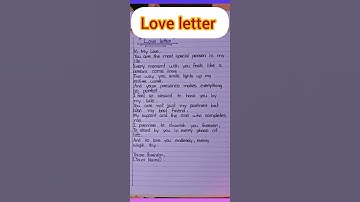 Love letter
Love letter
Hi My Love...
You are the most special person in my
life.
Every moment with you feels like a
dream come true.
The way you smile lights up my
entire world.
And your presence makes everything
so perfect
I feel so blessed to have you by
my side.
You are not just my partner but
also my best friend.
My support and the one who completes
me.
I promise to cherish you forever,
To stand by you in every phase of
life.
And to love you endlessly, every
single day.
Yours forever,
[Your Name]